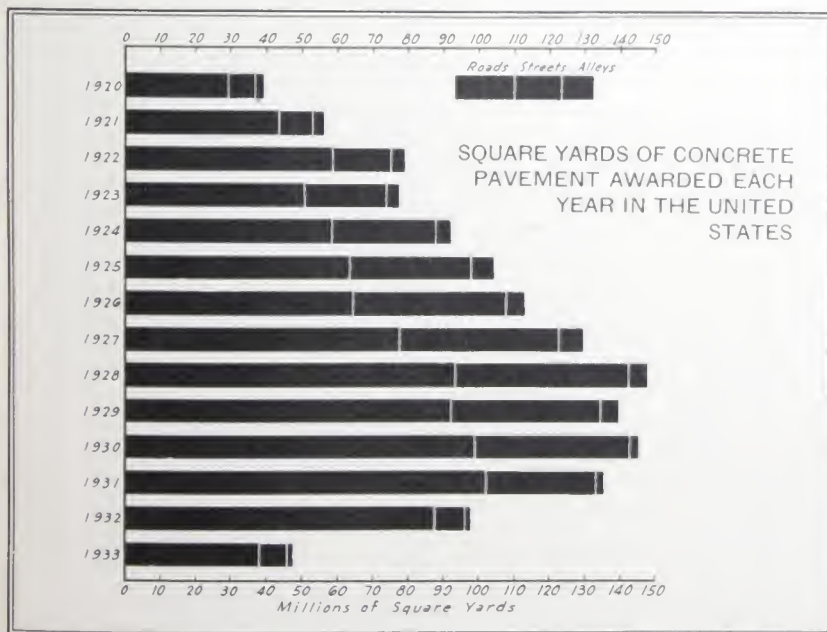 0 10 20 30 40 50 60 70 80 90 100 110 120 130 140 150
Roads Streets Alleys
1920
1921
1922
SQUARE YARDS OF CONCRETE
PAVEMENT AWARDED EACH
YEAR IN THE UNITED
STATES
1923
1924
1925
1926
1927
1928
1929
1930
1931
1932
1933
0 10 20 30 40 50 60 70 80 90 100 110 120 130 140 150
Millions of Square Yards